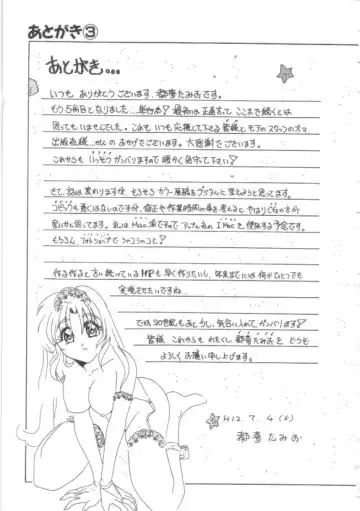 あとがき③
あとがき…
いつも ありがとうございます、都夢たみおです。
もう5冊目となりました…単行本! 最初は正直言って ここまで続くとは
思ってもいませんでした。これも いつも応援して下さる皆様と モアのスタッフの方々
出版社様…etc のおかげでございます。大感謝でございます。
これからも いっそう ガンバリますので 暖かく見守って下さい!
さて、話は変わりますが、もうそろそろ カラー原稿をデジタルに変えようと思ってます。
コピックも悪くはないのですが、修正や作業時間の事を考えると やはりCGの方が
良いかと思ってます。私はMac派ですので アニキんちの I Macを使用する予定です。
もちろん フォトショップで シャコシャコと!
作る作ると言い続けているHPも早く作りたいし、年末までには何かひとつでも
実現させたいですね
では 20世紀もあと少し、気合い入れて ガンバリます!
皆様 これからも わたくし 都夢たみおを どうも
よろしくお願い申し上げます。
H12.7.4(火)
都夢たみお